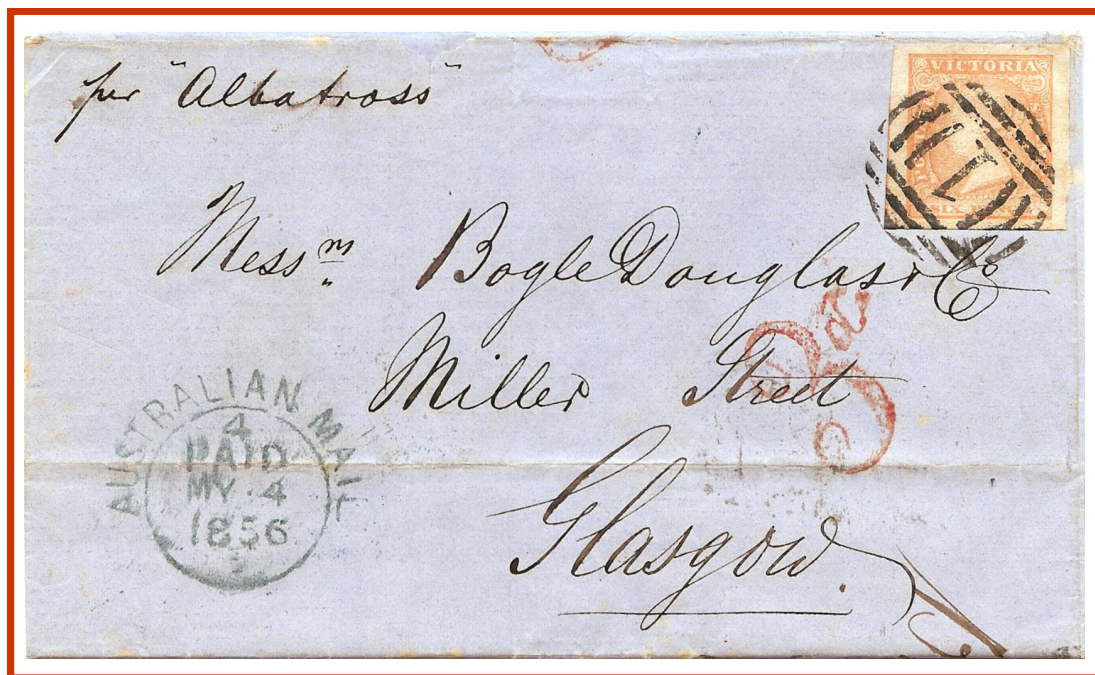 per "Albatross"
VICTORIA
Mess.rs Bogle Douglas & Co
Miller Street
Glasgow.
AUSTRALIAN MAIL
4
PAID
MY 4
1856